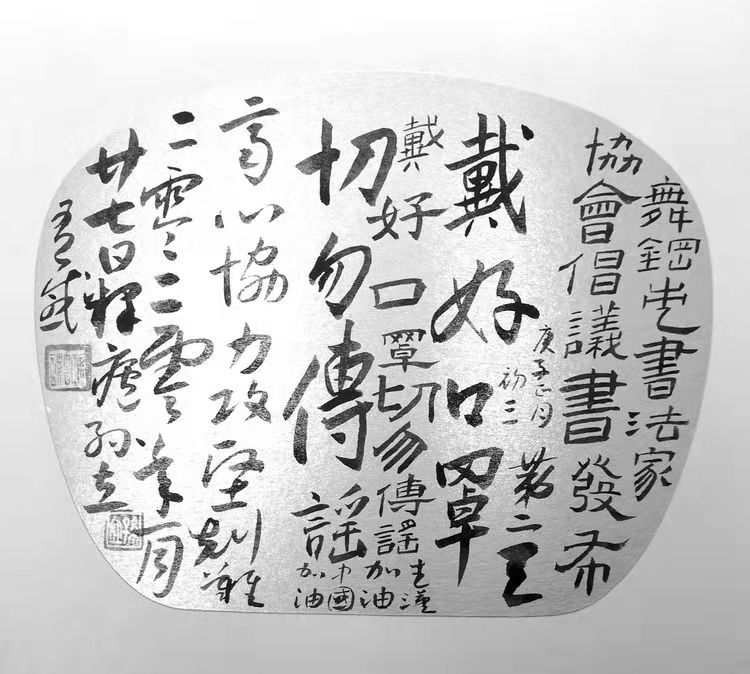 舞鋼市書法家
協會倡議書發布
庚子正月
初三
戴好口罩
戴好口罩切勿傳謠
切勿傳謠
武漢
加油
中國
加油
齊心協力攻堅剋難
二零二零年一月
廿七日